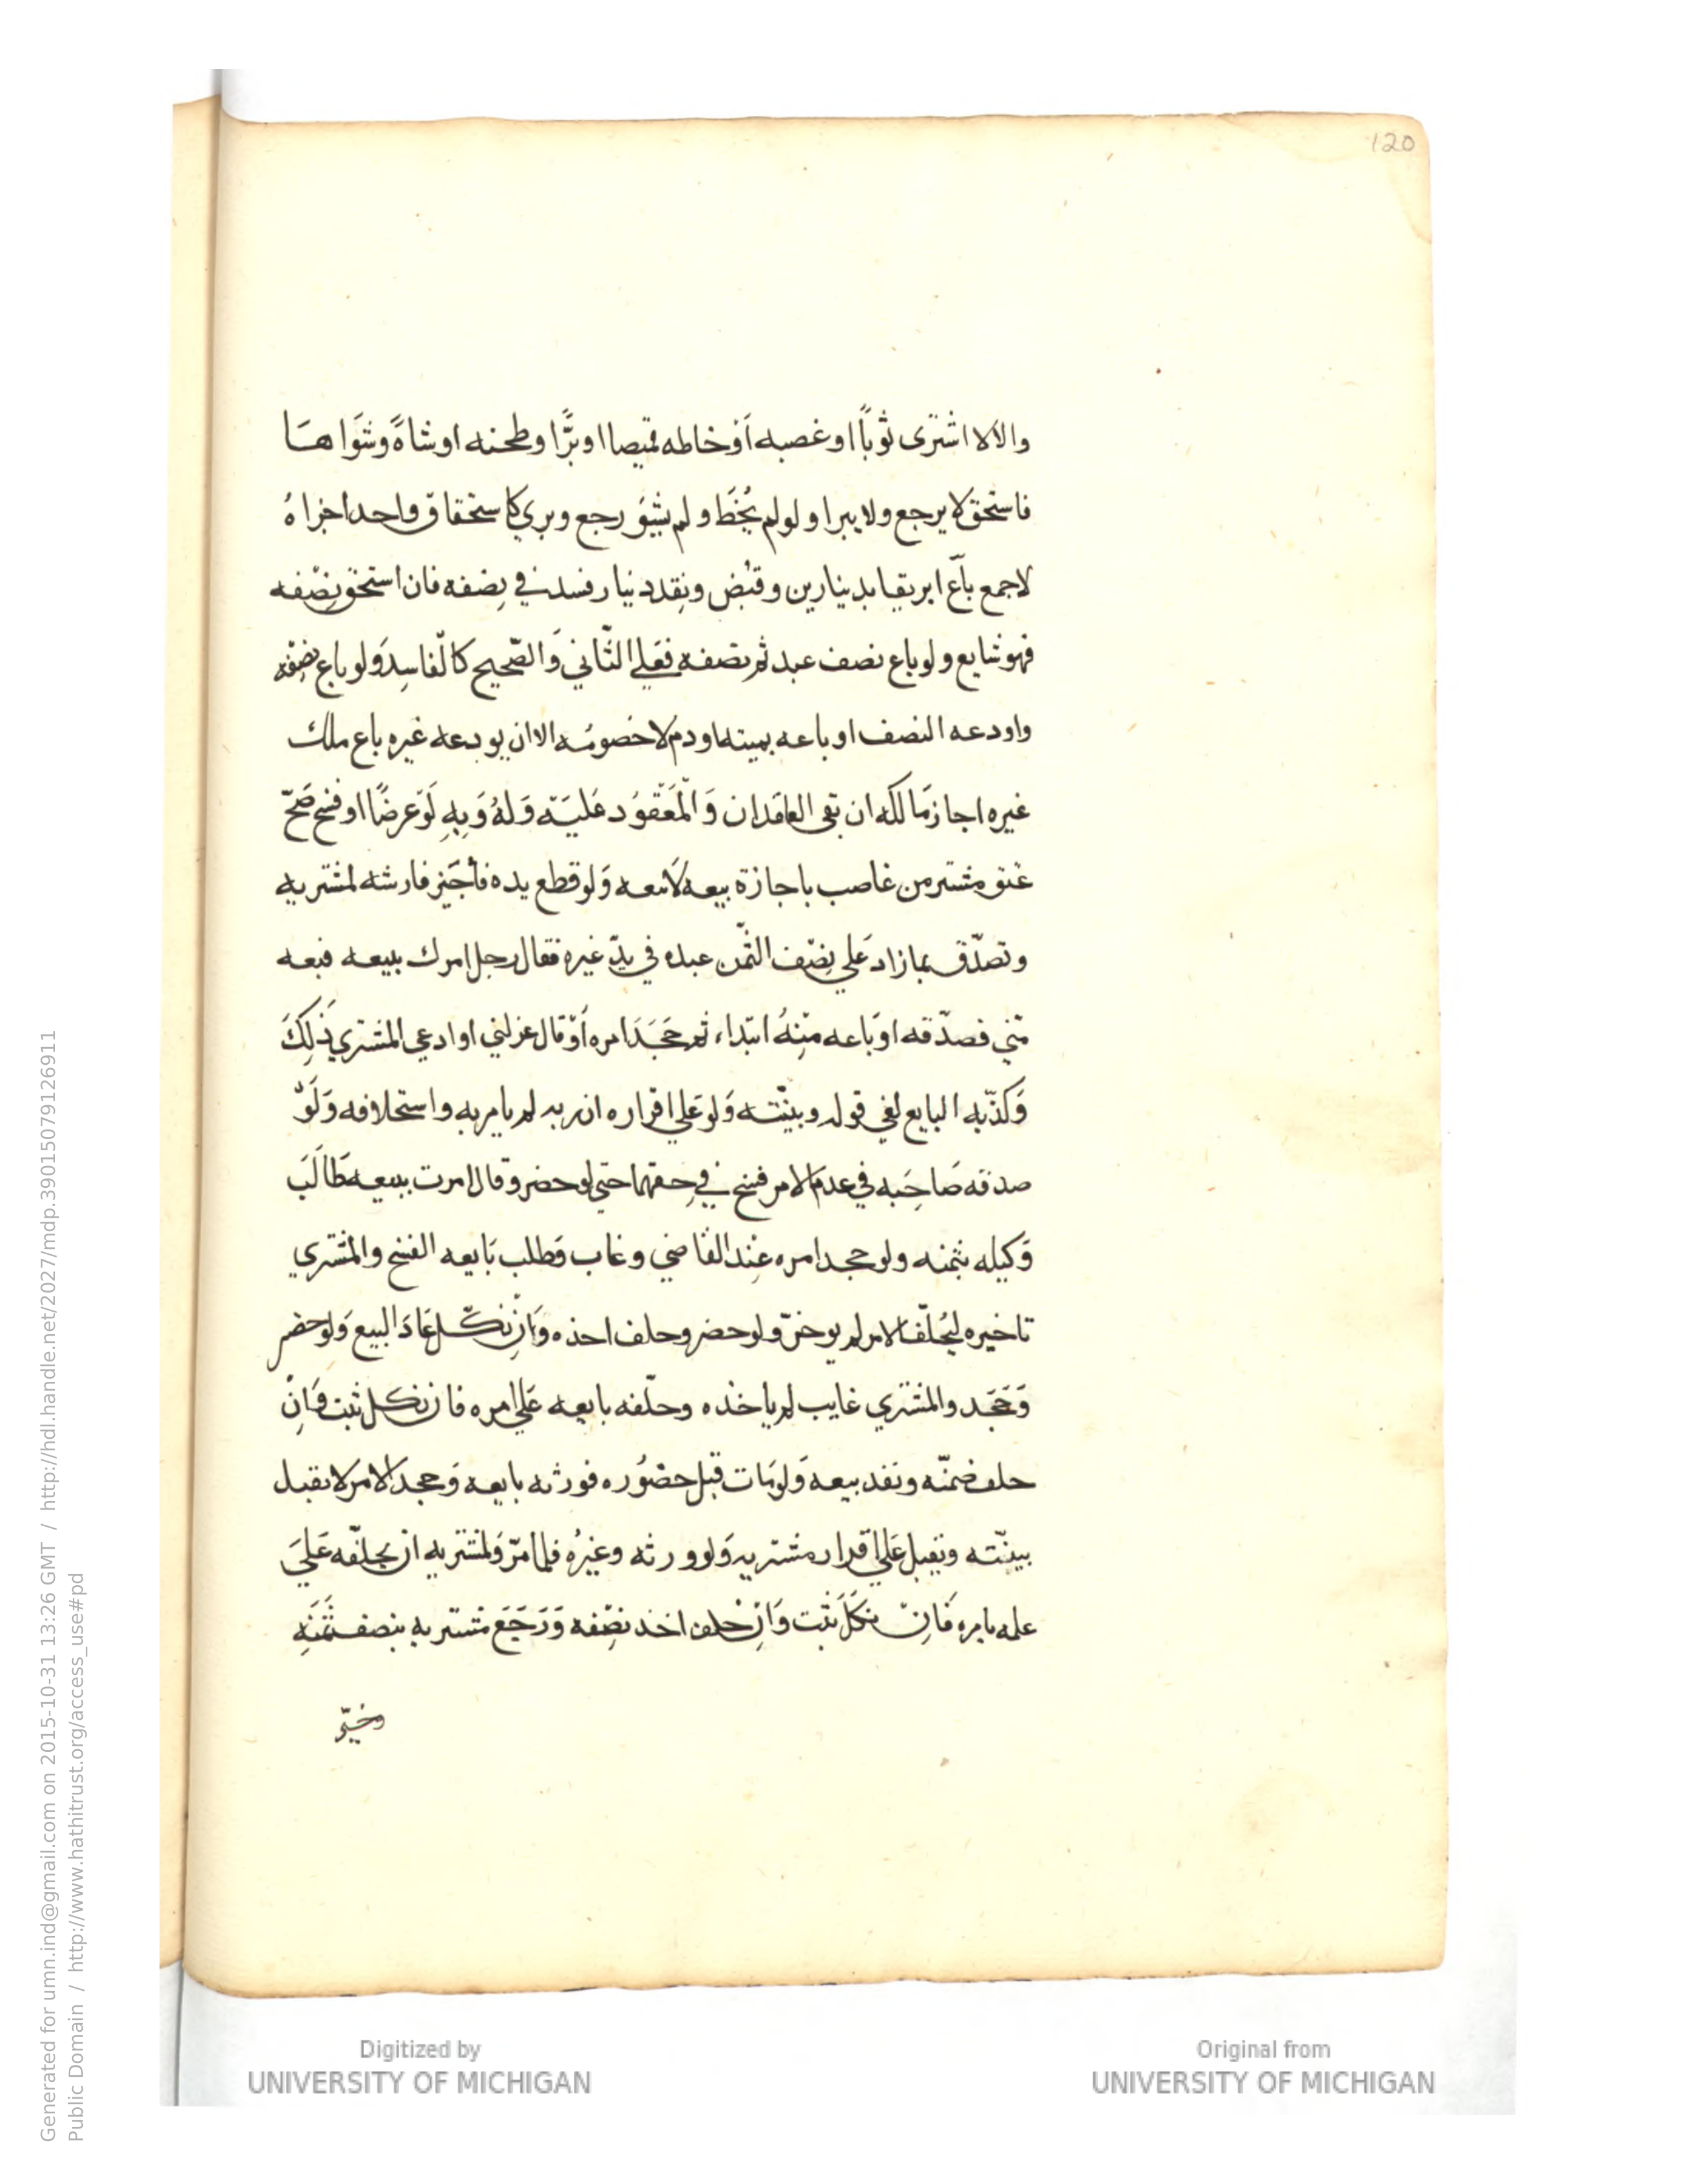 120
والالا اشترى ثوباً او غصبه أو خاطه قميصا او برًّا وطحنه او شاةً وشَوَاهَا
فاستحق لا يرجع ولا يبرا ولو لم يُخَط ولم يشوَ رجع وبري كاستحقاق واحد اجزاهُ
لا جمع باَع ابريقا بدينارين وقبض ونقد دينار فسد في نِصفه فان استحق نِصْفه
فهو شايع ولو باع نصف عبد ثم نصفه فَعَلي الثّاني وَالصّحيح كالفاسِد وَلو باع نصفه
واودعه النصف او باعه بميتة او دم لا خصومُه الا ان يودعه غيره باع ملك
غيره اجازمَالكه ان بقي العاقدان وَالْمَعْقوُد عَليَه وَلهُ وَبِهِ لَوْ عرضًا او فسخ صَحّ
عتق مشتر من غاصب باجازة بيعه لَا بيعه وَلو قطع يده فأجيز فارشه لمشتريه
وتصدّق بمازاد عَلي نِصْف الثّمن عبده في يدّ غيره فقال رجل امرك ببيعه فبعه
منّي فصدّقه اوَباعه منْهُ ابتداء ثم جَحَدَ امره أوْ قال عزلني او ادعي المشتري ذَلِكَ
وَكذّبه البايع لغي قوله وبينّته وَلو عَلي اقراره ان ربه لم يامر به واستحلافه وَلَوْ
صدقه صَاحِبه في عدم الامر فسخ في حِقهما حتي لو حضر وقال امرت ببيعه طَالَبَ
وَكيله بثمنه ولو جحد امره عِنْد القاضي وغاب وَطلب بَايعه الفسخ والمشتري
تاخيره ليُحلّف الامر لم يوخرّ ولو حضر وحلف اخذه وَانْ نكّل عَادَ البيع وَلو حضر
وَجَحَد والمشتري غايب لم ياخذه وحلّفه بايعه عَلي امره فان نكل ثبت وَانْ
حلف ضمنّه ونفد بيعه وَلو مَات قبل حضوُره فورثه بايعه وَجحد الامر لا تقبل
بينّته وتقبل عَلي اقرار مشتريه وَلو ورثه وغيرُه فلما مرّ وَلمشتريه ان يحلّفه عَليَ
علمه بامره فَانْ نكَلَ ثبت وَانْ حلف اخد نصْفه وَرَجَعَ مشتريه بنصف ثَمَنَهِ
وخيّر
Generated for umn.ind@gmail.com on 2015-10-31 13:26 GMT / http://hdl.handle.net/2027/mdp.39015079126911
Public Domain / http://www.hathitrust.org/access_use#pd
Digitized by
UNIVERSITY OF MICHIGAN
Original from
UNIVERSITY OF MICHIGAN